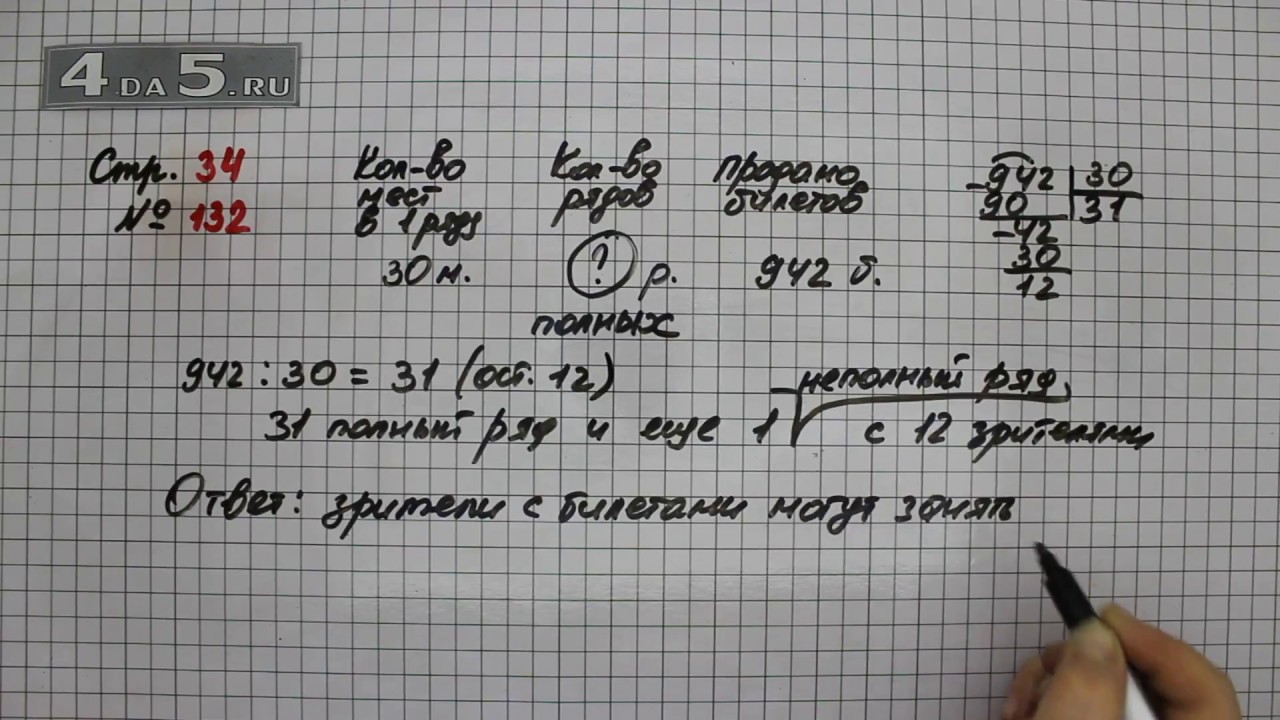 4DA5.RU
Стр. 34
№ 132
Кол-во мест в 1 ряду
30 м.
Кол-во рядов
? р.
полных
Продано билетов
942 б.
-942 30
90 31
-42
30
12
942 : 30 = 31 (ост. 12)
неполный ряд
31 полный ряд и еще 1 с 12 зрителями
Ответ: зрители с билетами могут занять